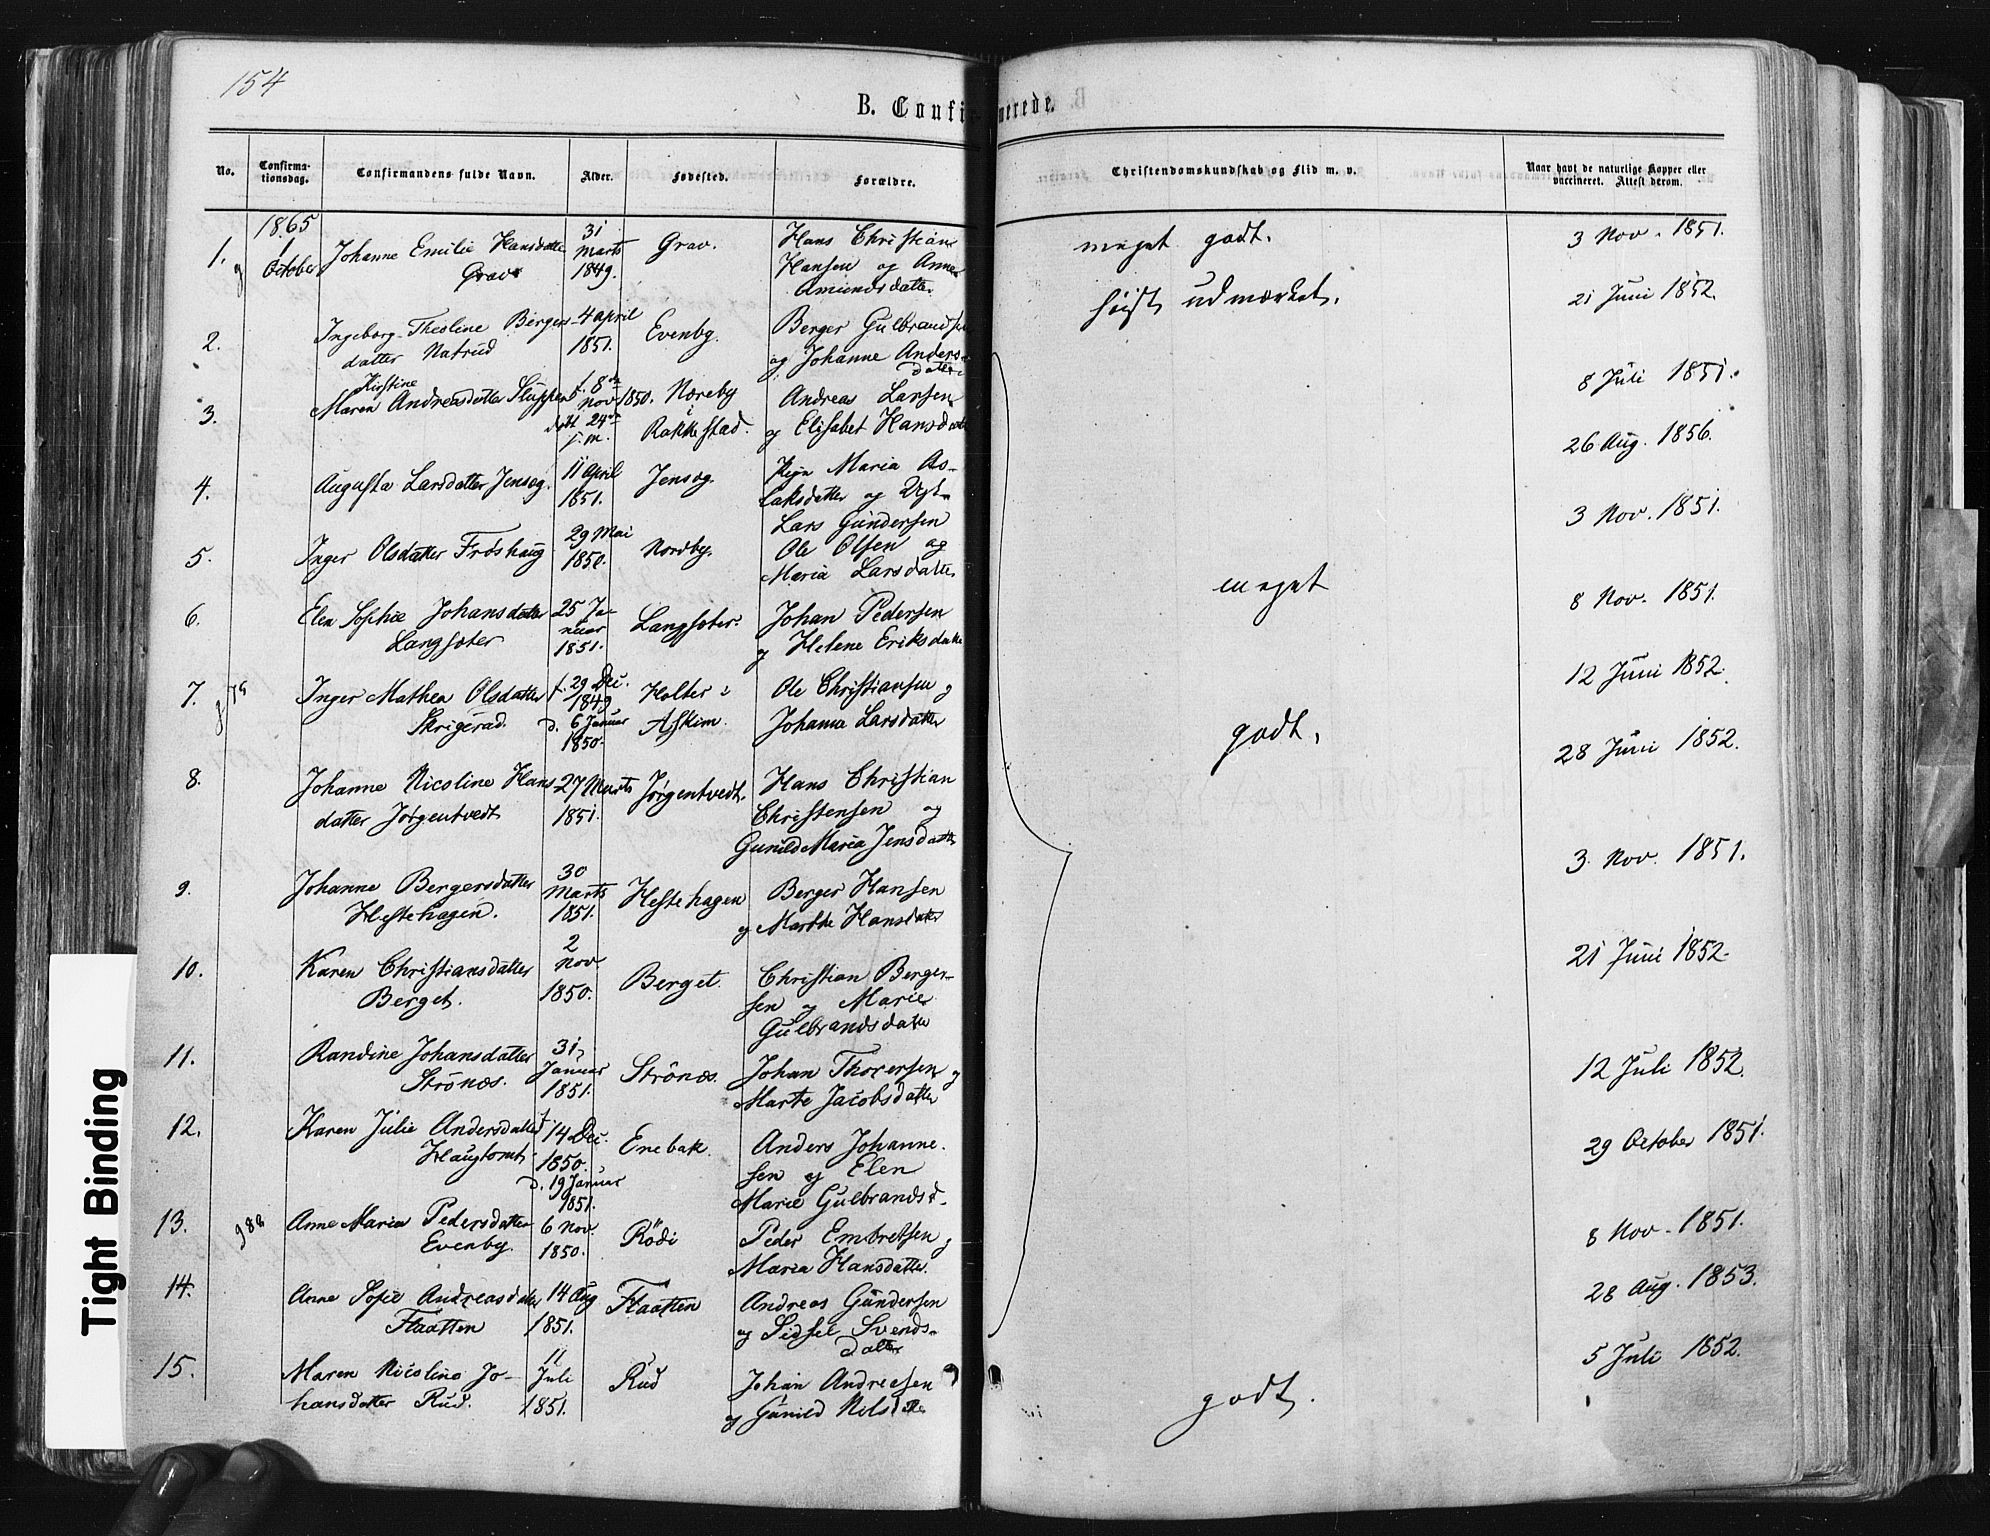 154
B. Confirmerede.
No.
Confirma-
tionsdag.
Confirmandens fulde Navn.
Alder.
Fødested.
Forældre.
Christendomskundskab og Flid m. v.
Naar havt de naturlige Kopper eller
vaccineret. Attest derom.
1865
1. 1 October Johanne Emilie Hansdatter
Grav
31 Marts 1849.
Grav.
Hans Christian
Hansen og Anne
Amundsdatter
meget godt.
3 Nov. 1851.
2. Ingeborg Theoline Bergers-
datter Natrud
4 April
1851.
Evenby.
Berger Gulbrandsen
og Johanne Anders-
datter
høist udmærket.
21 Juni 1852.
3. Kirstine
Maren Andreasdatter
f. 8de
Nov 1850.
døbt 24de
s. m.
Næreby
i
Rakkestad.
Andreas Larsen
og Elisabet Hansdatter
8 Juli 1851.
4. Augusta Larsdatter Jensøg.
11 April
1851.
Jensøg.
Pige Maria As-
laksdatter og Ugk.
Lars Gundersen
26 Aug. 1856.
5. Inger Olsdatter Frøshaug
29 Mai
1850.
Nordby.
Ole Olsen og
Maria Larsdatter
3 Nov. 1851.
6. Elen Sophie Johansdatter
Langsæter
25 Ja-
nuar
1851.
Langsæter.
Johan Pedersen
og Helene Eriksdatter
meget
8 Nov. 1851.
7. Inger Mathea Olsdatter
Skrigerud.
f. 29 Dec.
1849
d. 6 Januar
1850.
Holter i
Askim.
Ole Christiansen og
Johanna Larsdatter
godt.
12 Juni 1852.
8. Johanne Nicoline Hans-
datter Jørgentvedt
27 Marts
1851.
Jørgentvedt.
Hans Christian
Christensen og
Gunild Maria Jensdatter
28 Juni 1852.
9. Johanne Bergersdatter
Hestehagen.
30
Marts
1851.
Hestehagen
Berger Hansen
og Marthe Hansdatter
3 Nov. 1851.
10. Karen Christiansdatter
Berget.
2
Nov.
1850.
Berget.
Christian Berger-
sen og Marie
Gulbrandsdatter
21 Juni 1852.
11. Randine Johansdatter
Strönæs.
31
Januar
1851.
Strönæs.
Johan Thorersen og
Marte Jacobsdatter
12 Juli 1852.
12. Karen Julie Andersdatter
Haugtomt
f.
14 Dec.
1850.
d. 19 Januar
1851.
Enebak.
Anders Johanne-
sen og Elen
Marie Gulbrandsd.
29 October 1851.
13. Anne Maria Pedersdatter
Evenby.
6 Nov.
1850.
Rödi
Peder Embretsen og
Maria Hansdatter.
8 Nov. 1851.
14. Anne Sofie Andreasdatter
Flaatten
14 Aug
1851.
Flaatten
Andreas Gundersen
og Sidsel Svends-
datter
28 Aug. 1853.
15. Maren Nicoline Jo-
hansdatter Rud.
11
Juli
1851.
Rud
Johan Andreasen
og Gunild Nilsdatter
godt.
5 Juli 1852.
Tight Binding